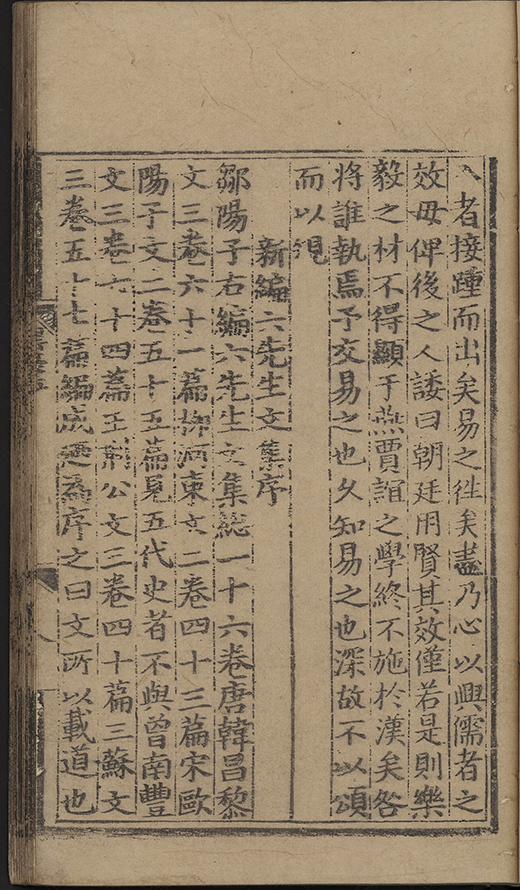 人者接踵而出矣易之徃矣盡乃心以興儒者之
效毋俾後之人諉曰朝廷用賢其效僅若是則樂
毅之材不得顯于燕賈誼之學終不施於漢矣咎
將誰執焉予交易之也久知易之也深故不以頌
而以規
新編六先生文集序
鄒陽子右編六先生文集総一十六卷唐韓昌黎
文三卷六十一篇柳河東文二卷四十三篇宋歐
陽子文二卷五十五篇見五代史者不與曾南豐
文三卷六十四篇王荊公文三卷四十篇三蘇文
三卷五十七篇編成遂為序之曰文所以載道也